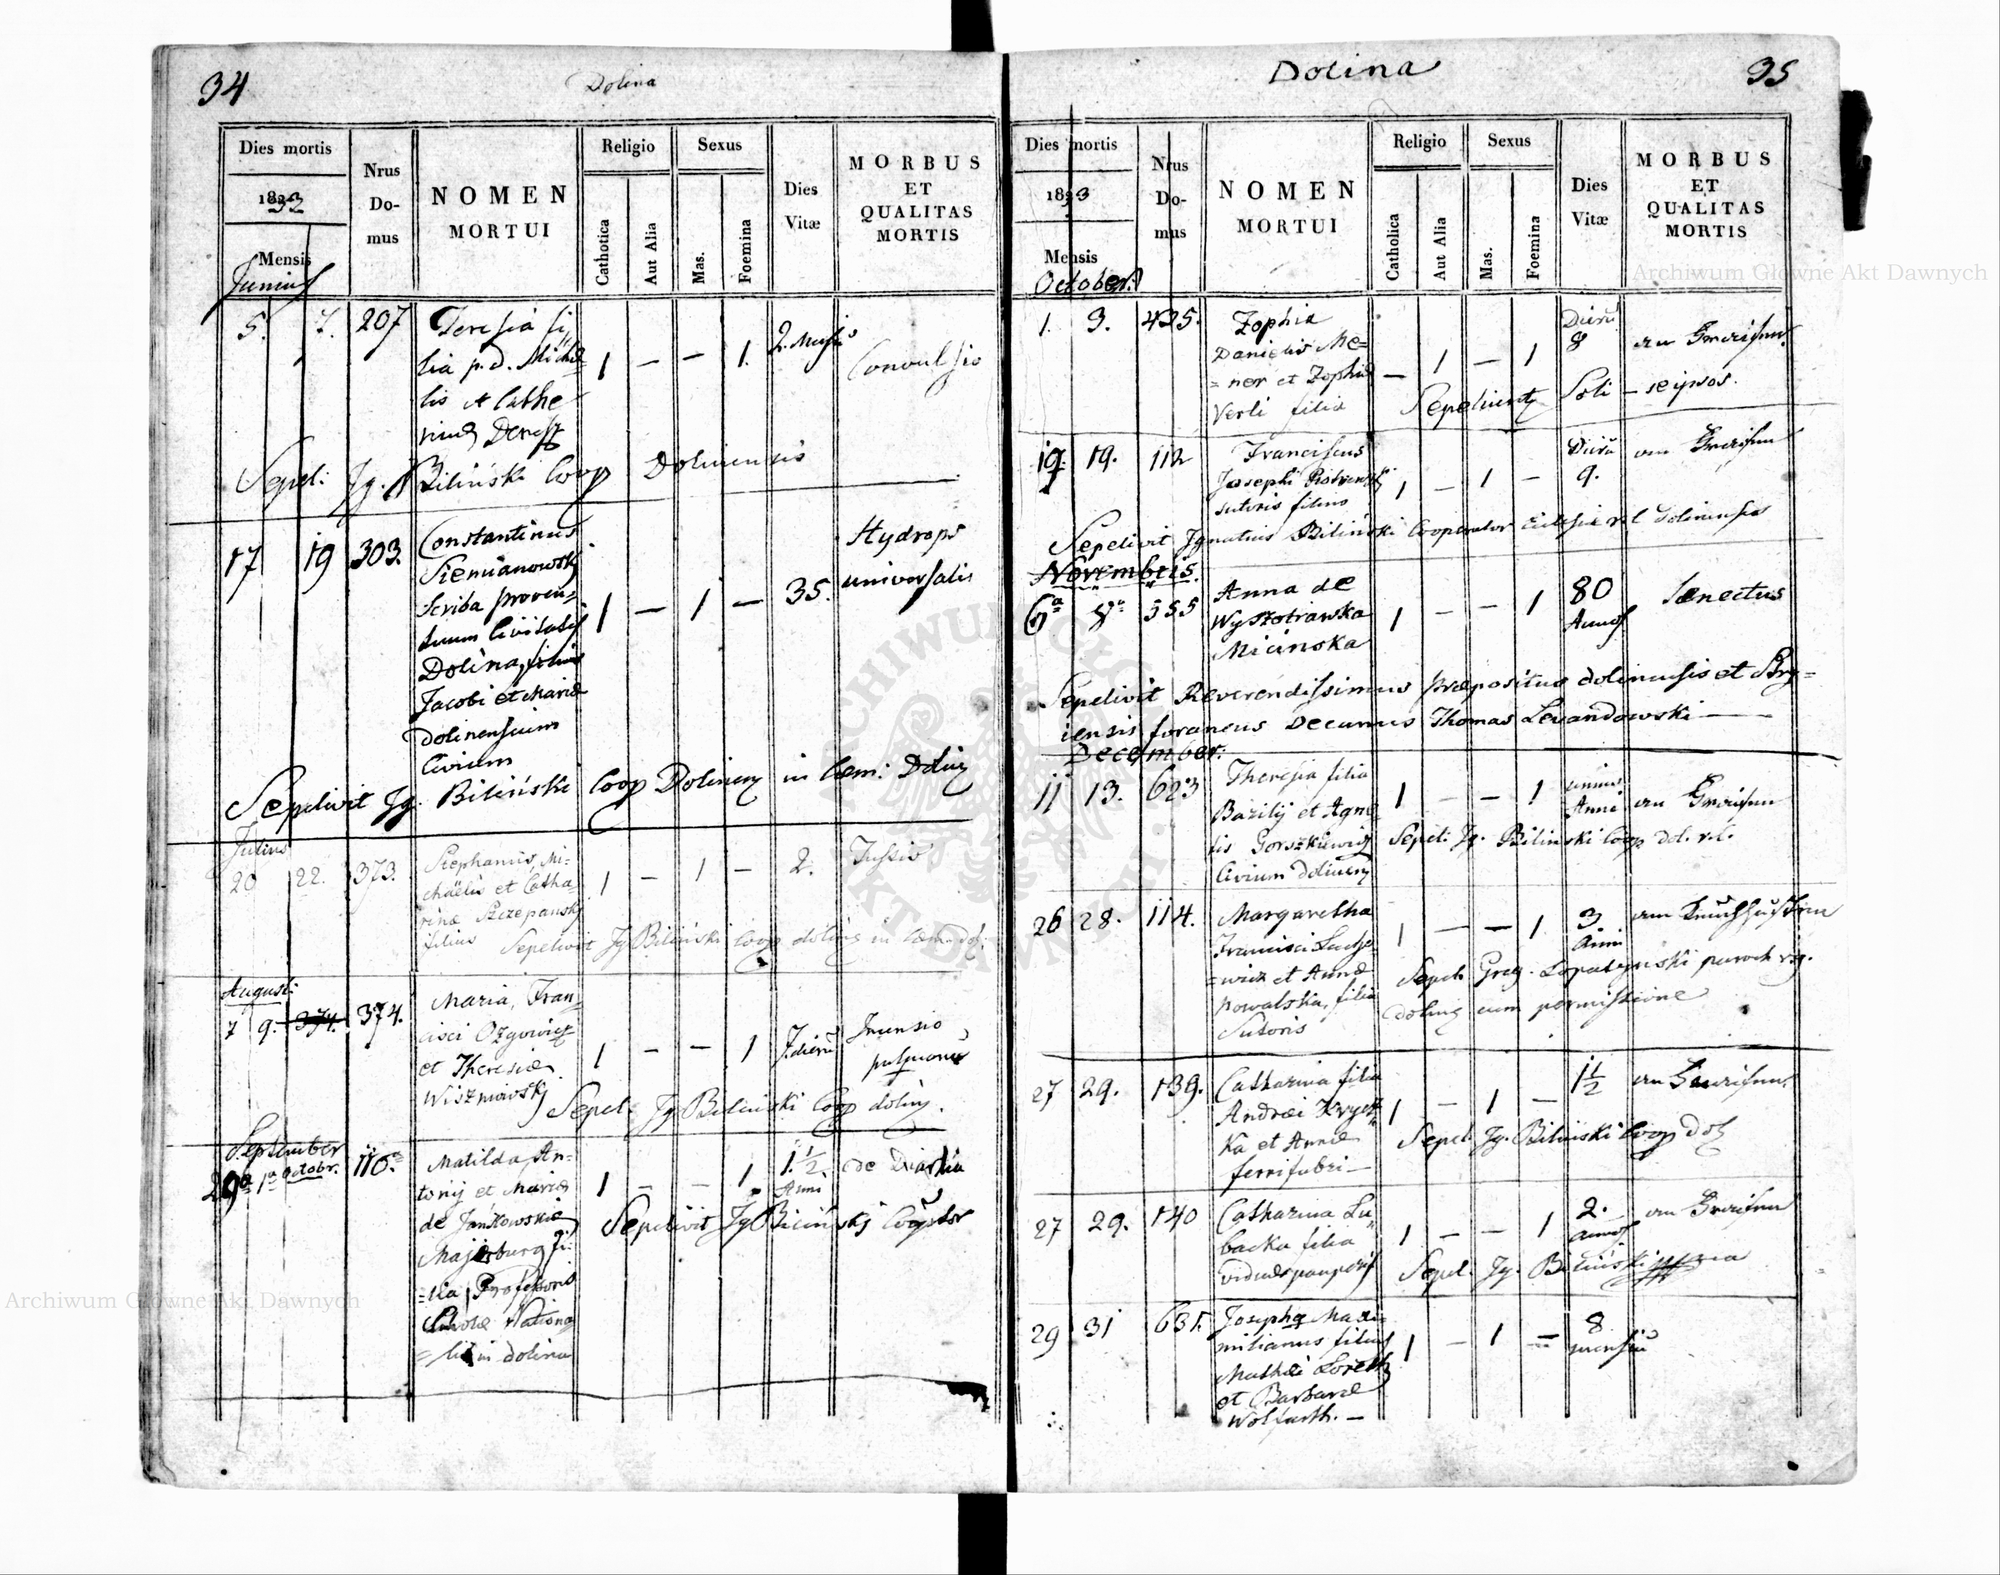 34
Dolina
Dies mortis
Nrus Domus
NOMEN MORTUI
Religio
Catholica
Aut Alia
Sexus
Mas.
Foemina
Dies Vitæ
MORBUS ET QUALITAS MORTIS
Mensis
Junius
5. 7. 207
Teresia fi
lia p. d. Micha
lis et Cathe
rinæ
1 — — 1.
Convulsio
Sepel: Jg. Biliński Coop Dolinensis
17 19 303.
Constantinus
Siemianowski
Scriba proven=
tuum Civitatis
Dolina, filius
Jacobi et Mariæ
dolinensium
Civium
1 — 1 — 35.
Hydrops
universalis
Sepelivit Jg. Biliński Coop Dolinen in Cœm: Dolin
Julius
20 22. 373.
Stephanus, Mi-
chaëlis et Catha-
rinæ Szczepanski
filius
1 — 1 — 2. Tussis
Sepelivit Jg Biliński Coop dolin in
August:
7 9. 374. 374.
Maria, Fran-
cisci Ozgowicz
et Theresiæ
Wiszniowski
1 — — 1
7. dierū
Sepel: Jg Biliński Coop dolin.
September
29a 1a Octobr. 116.
Matilda, An-
tonij et Mariæ
de Jankowskie
Majerburg fi-
=lia Professoris
Scholæ Nationa
=lis in dolina
1 — — 1
1. 1/2. Anni
Sepelivit Jg Biliński
35
Dolina
Dies mortis
1833
Mensis
October.
Nrus Domus
NOMEN MORTUI
Religio
Catholica
Aut Alia
Sexus
Mas.
Foemina
Dies Vitæ
MORBUS ET QUALITAS MORTIS
1. 3. 435.
Zophia
Danielis Me=
=ner et Zophiæ
Verli filia
— 1 — 1
Dierū
8
Sepeliunt Soli — seipsos.
19. 19. 112
Franciscus
Josephi
sutoris filius
1 — 1 —
Dierū
9.
Sepelivit Ignatius Biliński Cooperator Ecclesiæ r. l Dolinensis
Novembris.
6a 8a 355
Anna de
Wyszotrawka
Micinska
1 — — 1
80
Annos
Senectus
Sepelivit Reverendissimus Præpositus dolinensis et Stry=
iensis foraneus Decanus Thomas Lewandowski —
December.
11 13. 623
Theresia filia
Bazilij et Agne
tis Gorszkiewicz
Civium Dolinen
1 — — 1
unius
Anni
Sepel: Jg. Biliński Coop dol. r. l.
26 28. 114.
Margaretha
Francisci
=wicz et Annæ
Kowalska, filia
Sutoris
1 — — 1
3
Anni
Sepel: Greg. Lopatynski paroch rg.
dolin cum permissione
27 29. 139.
Catharina filia
Andræi
ka et Annæ
ferrifabri —
1 — 1 —
1 1/2
Sepel: Jg. Biliński Coop Dol
27 29. 140
Catharina Lu
backa filia
viduæ pauperis
1 — — 1
2.
Annos
Sepel: Jg. Biliński
29 31 631.
Josephq Maxi-
milianus filius
Mathæi
et Barbaræ
Wolfarth. —
1 — 1 —
8
mensiū
Archiwum Główne Akt Dawnych
Archiwum Główne Akt Dawnych